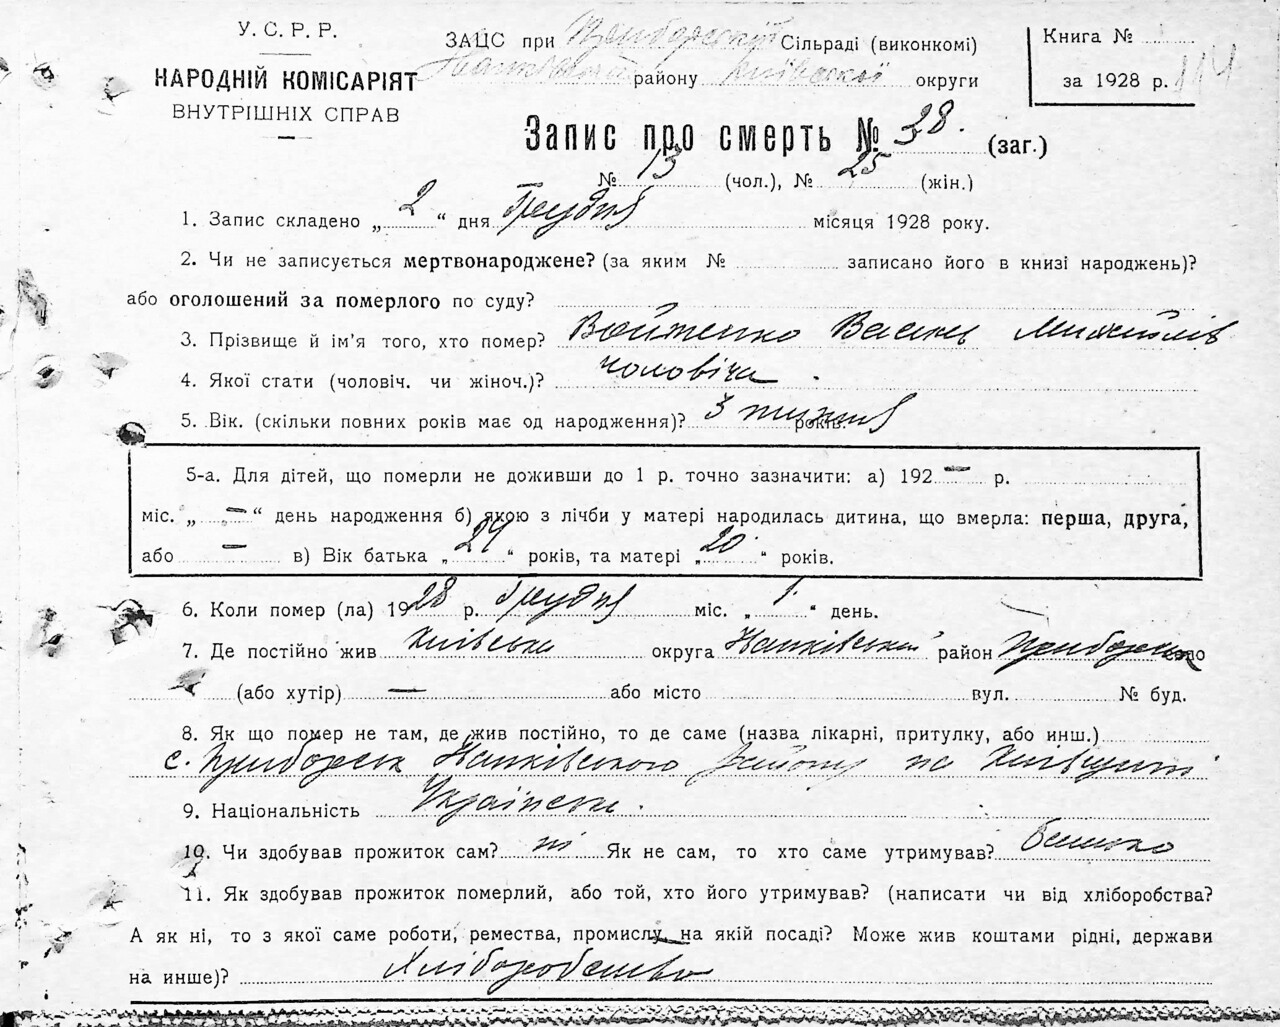 У. С. Р. Р.
НАРОДНІЙ КОМІСАРІЯТ
ВНУТРІШНІХ СПРАВ
ЗАЦС при Приборській Сільраді (виконкомі)
району Київської округи
Книга №
за 1928 р. 114
Запис про смерть № 38. (заг.)
№ 13 (чол.), № 25 (жін.)
1. Запис складено „ 2 “ дня Грудня місяця 1928 року.
2. Чи не записується мертвонароджене? (за яким № записано його в книзі народжень)?
або оголошений за померлого по суду?
3. Прізвище й ім’я того, хто помер? Войтенко Василь Михайлів
4. Якої стати (чоловіч. чи жіноч.)? чоловіча.
5. Вік. (скільки повних років має од народження)? 3 тижня років.
5-а. Для дітей, що померли не доживши до 1 р. точно зазначити: а) 192 — р.
міс. „ — “ день народження б) якою з лічби у матері народилась дитина, що вмерла: перша, друга,
або — в) Вік батька „ 24 “ років, та матері „ 20 “ років.
6. Коли помер (ла) 1928 р. Грудня міс. „ 1 “ день.
7. Де постійно жив Київська округа Іванківський район Приборськ село
(або хутір) — або місто вул. № буд.
8. Як що помер не там, де жив постійно, то де саме (назва лікарні, притулку, або инш.)
с. Приборськ Іванківського району на Київщині
9. Національність Українська.
10. Чи здобував прожиток сам? ні Як не сам, то хто саме утримував? батько
11. Як здобував прожиток померлий, або той, хто його утримував? (написати чи від хліборобства?
А як ні, то з якої саме роботи, ремества, промислу, на якій посаді? Може жив коштами рідні, держави
на инше)? Хліборобство